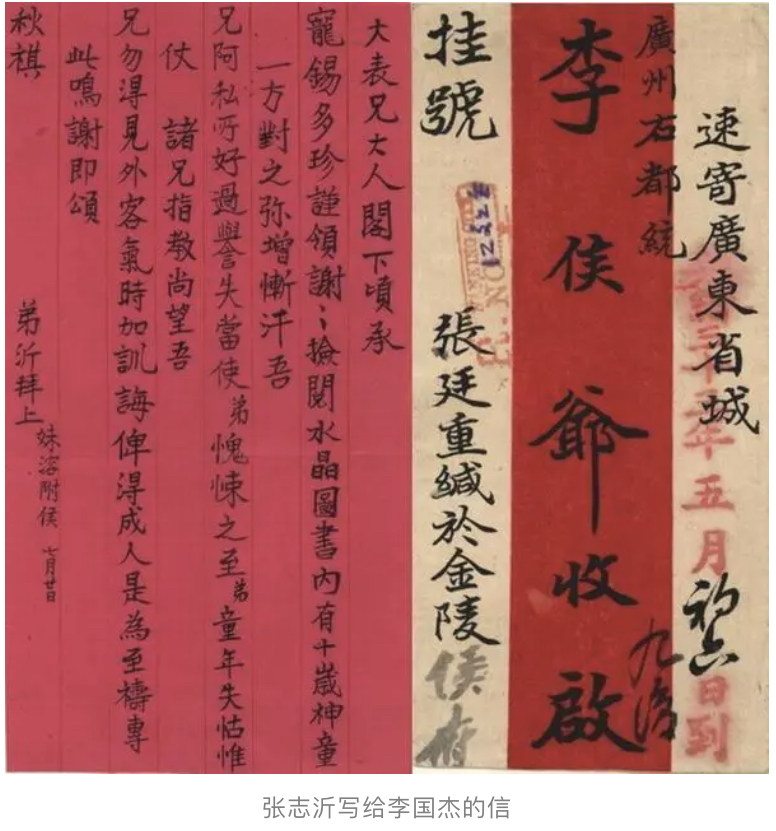 速寄廣東省城
年五月初六日到
廣州右都統
李侯爺收啟
挂號
張廷重緘於金陵
侯府
大表兄大人閣下頃承
寵錫多珍謹領謝〻撿閱水晶圖書內有十歲神童
一方對之弥增慚汗吾
兄阿私所好過譽失當使弟愧悚之至弟童年失怙惟
仗 諸兄指教尚望吾
兄勿淂見外客氣時加訓誨俾淂成人是為至禱專
此鳴謝即頌
秋祺 弟沂拜上
妹溶附候 七月廿日
张志沂写给李国杰的信